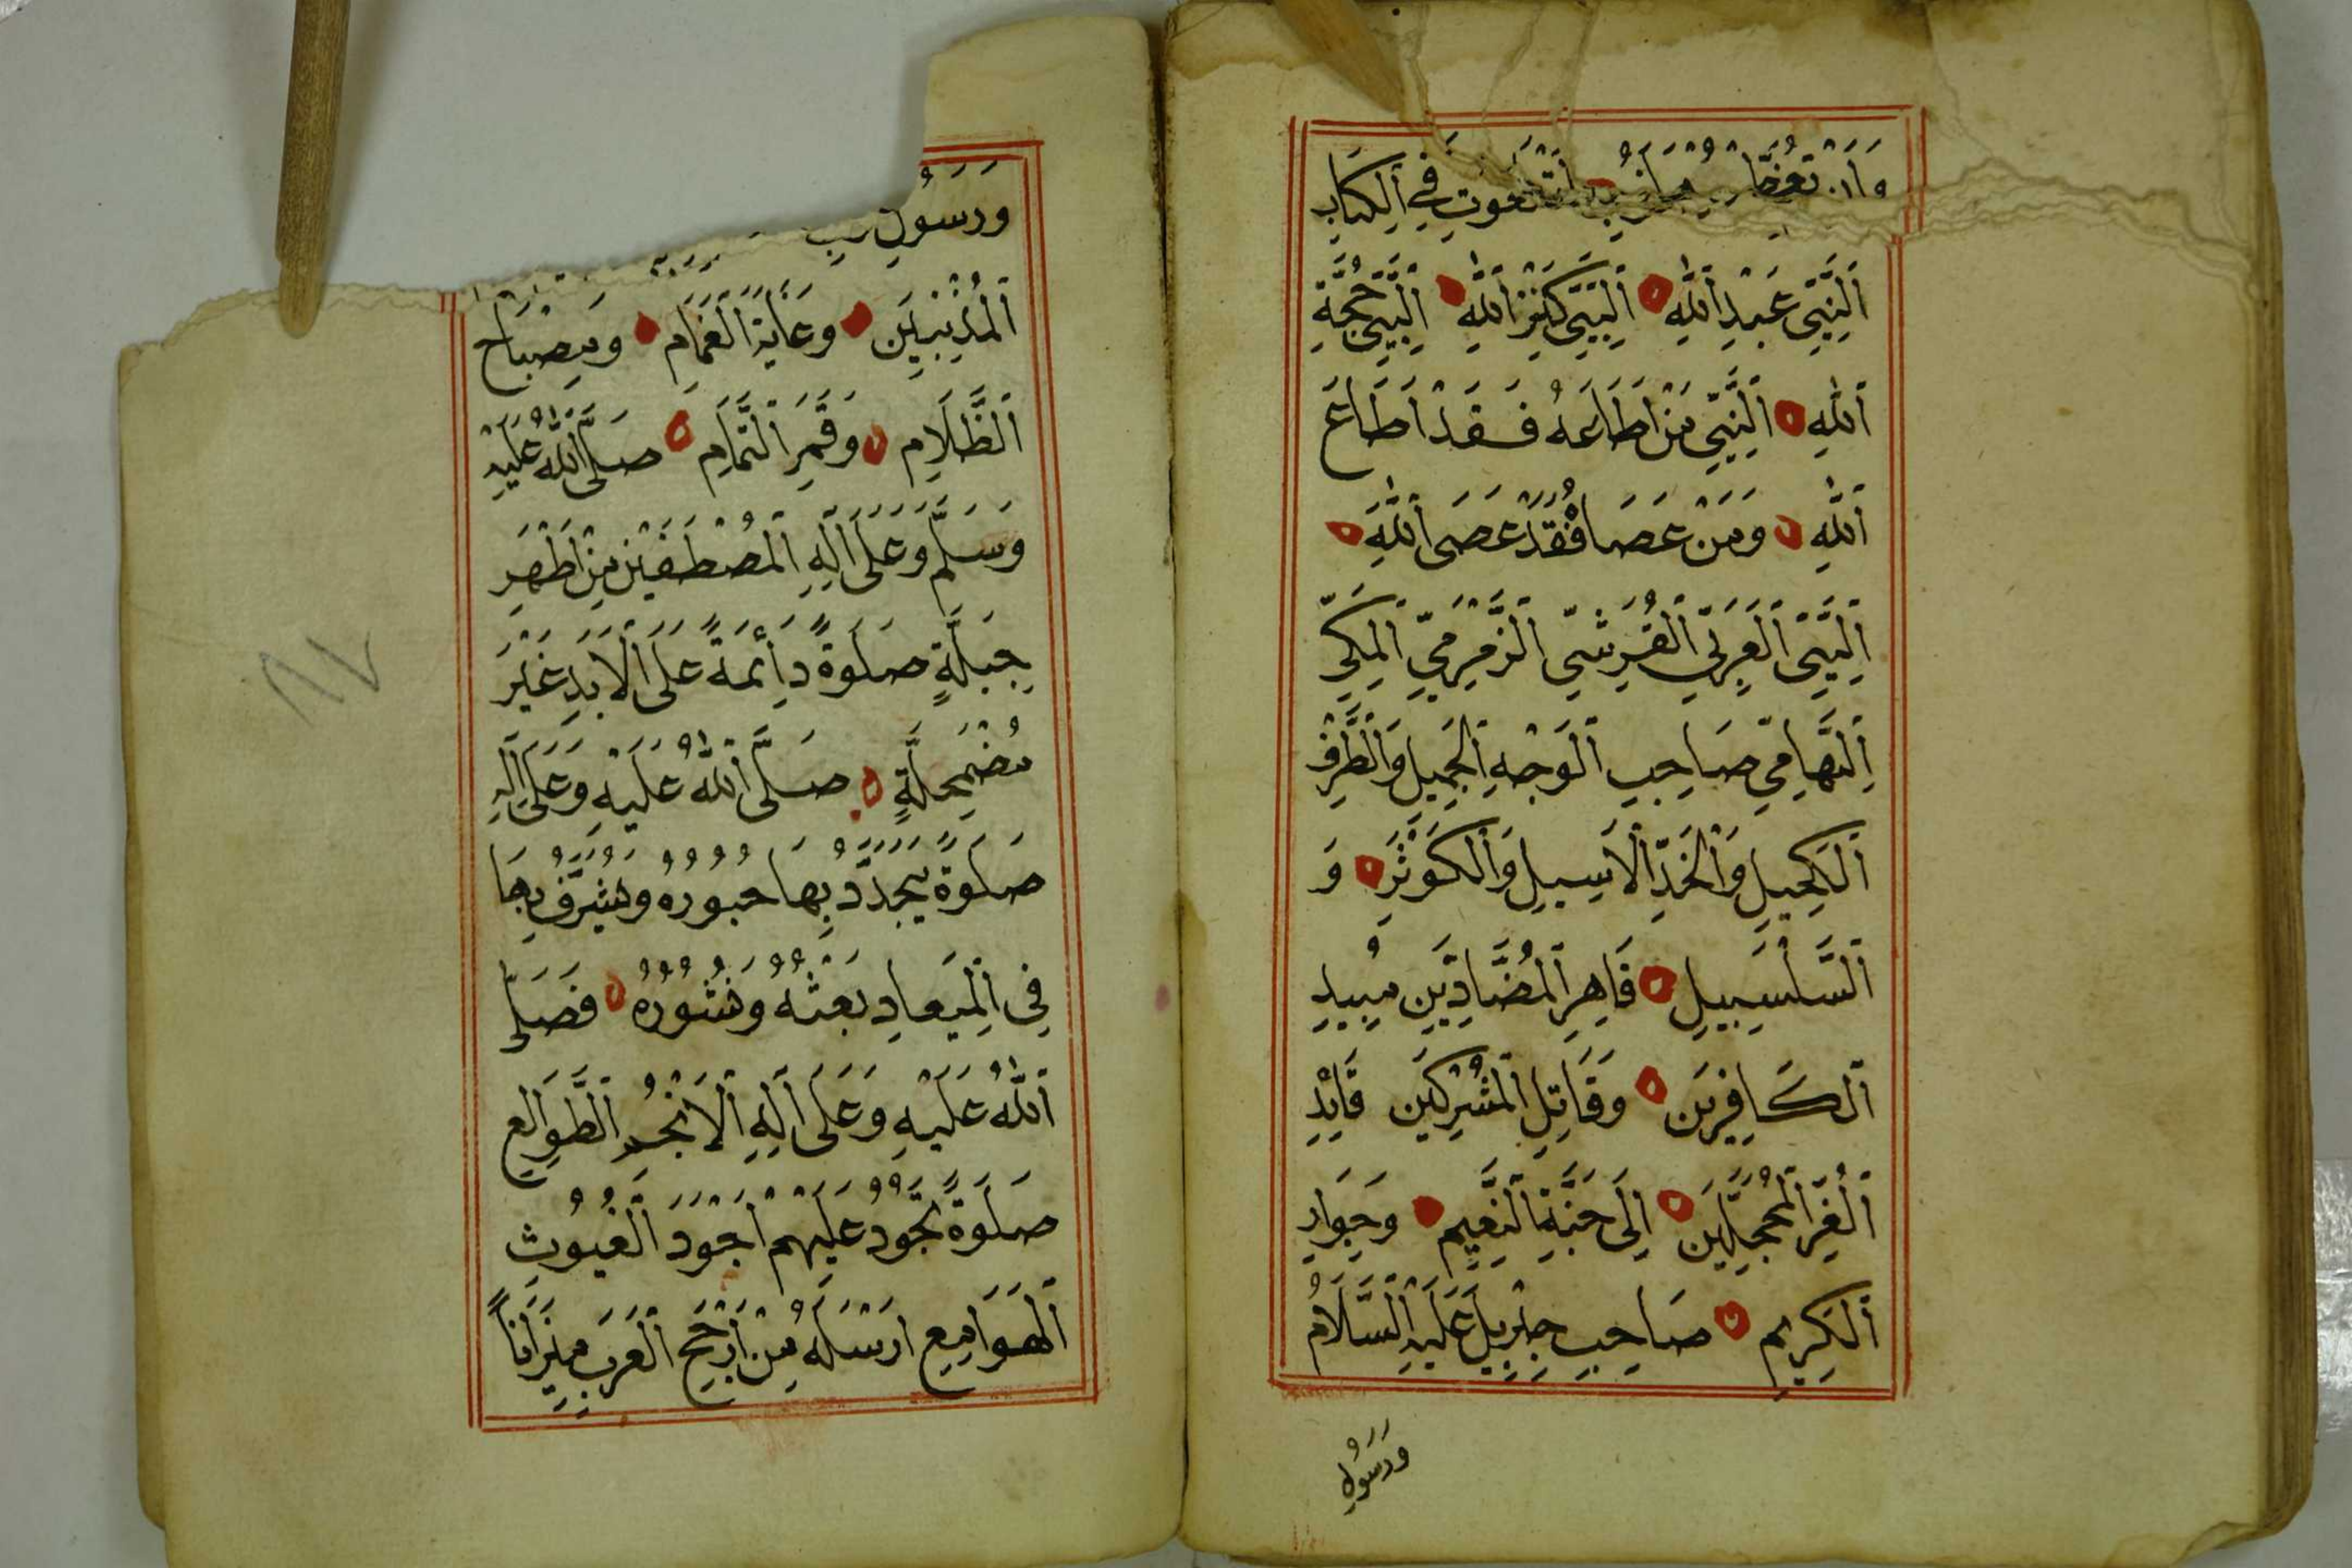 وَاَنْ فِي اَلْكِتَابِ
اَلنَّبِيِّ عَبْدِ اَللّٰهِ اَلنَّبِيِّ كَنْزِ اَللّٰهِ اَلنَّبِيِّ حُجَّةِ
اَللّٰهِ اَلنَّبِيِّ مَنْ اَطَاعَهُ فَقَدْ اَطَاعَ
اَللّٰهِ وَمَنْ عَصَا فَقَدْ عَصَى اَللّٰهَ
اَلنَّبِيِّ اَلْعَرَبِيِّ اَلْقُرَشِيِّ اَلزَّمْزَمِيِّ اَلْمَكِّيِّ
اَلتِّهَامِيِّ صَاحِبِ اَلْوَجْهِ اَلْجَمِيلِ وَاَلطَّرْفِ
اَلْكَحِيلِ وَاَلْخَدِّ اَلْاَسِيلِ وَاَلْكَوْثَرِ وَ
اَلسَّلْسَبِيلِ قَاهِرِ اَلْمُضَّادِّينَ مُبِيدِ
اَلْكَافِرِينَ وَقَاتِلِ اَلْمُشْرِكِينَ قَائِدِ
اَلْغُرِّ اَلْمُحَجَّلِينَ اِلَى جَنَّةِ اَلنَّعِيمِ وَجِوَارِ
اَلْكَرِيمِ صَاحِبِ جِبْرِيلَ عَلَيْهِ اَلسَّلَامُ
وَرَسُولِ
وَرَسُولِ رَبِّ
اَلْمُذْنِبِينَ وَغَايَةِ اَلْغَمَامِ وَمِصْبَاحِ
اَلظَّلَامِ وَقَمَرِ اَلتَّمَامِ صَلَّى اَللّٰهُ عَلَيْهِ
وَسَلَّمَ وَعَلَى اَلِهِ اَلْمُصْطَفَيْنَ مِنْ اَطْهَرِ
جِبِلَّةٍ صَلَوةً دَائِمَةً عَلَى اَلْاَبَدِ غَيْرَ
مُضْمَحِلَّةٍ صَلَّى اَللّٰهُ عَلَيْهِ وَعَلَى اَلِهِ
صَلَوةً يَجَدَّدُ بِهَا حُبُورُهُ وَيُشَرَّفُ بِهَا
فِي اَلْمِيعَادِ بَعْثُهُ وَنُشُورُهُ فَصَلَّى
اَللّٰهُ عَلَيْهِ وَعَلَى اَلِهِ اَلْاَنْجُمِ اَلطَّوَالِعِ
صَلَوةً تَجُودُ عَلَيْهِمْ اَجْوَدَ اَلْغُيُوثِ
اَلْهَوَامِعِ اَرْسَلَهُ مِنْ اَرْجَحِ اَلْعَرَبِ مِيزَانًا